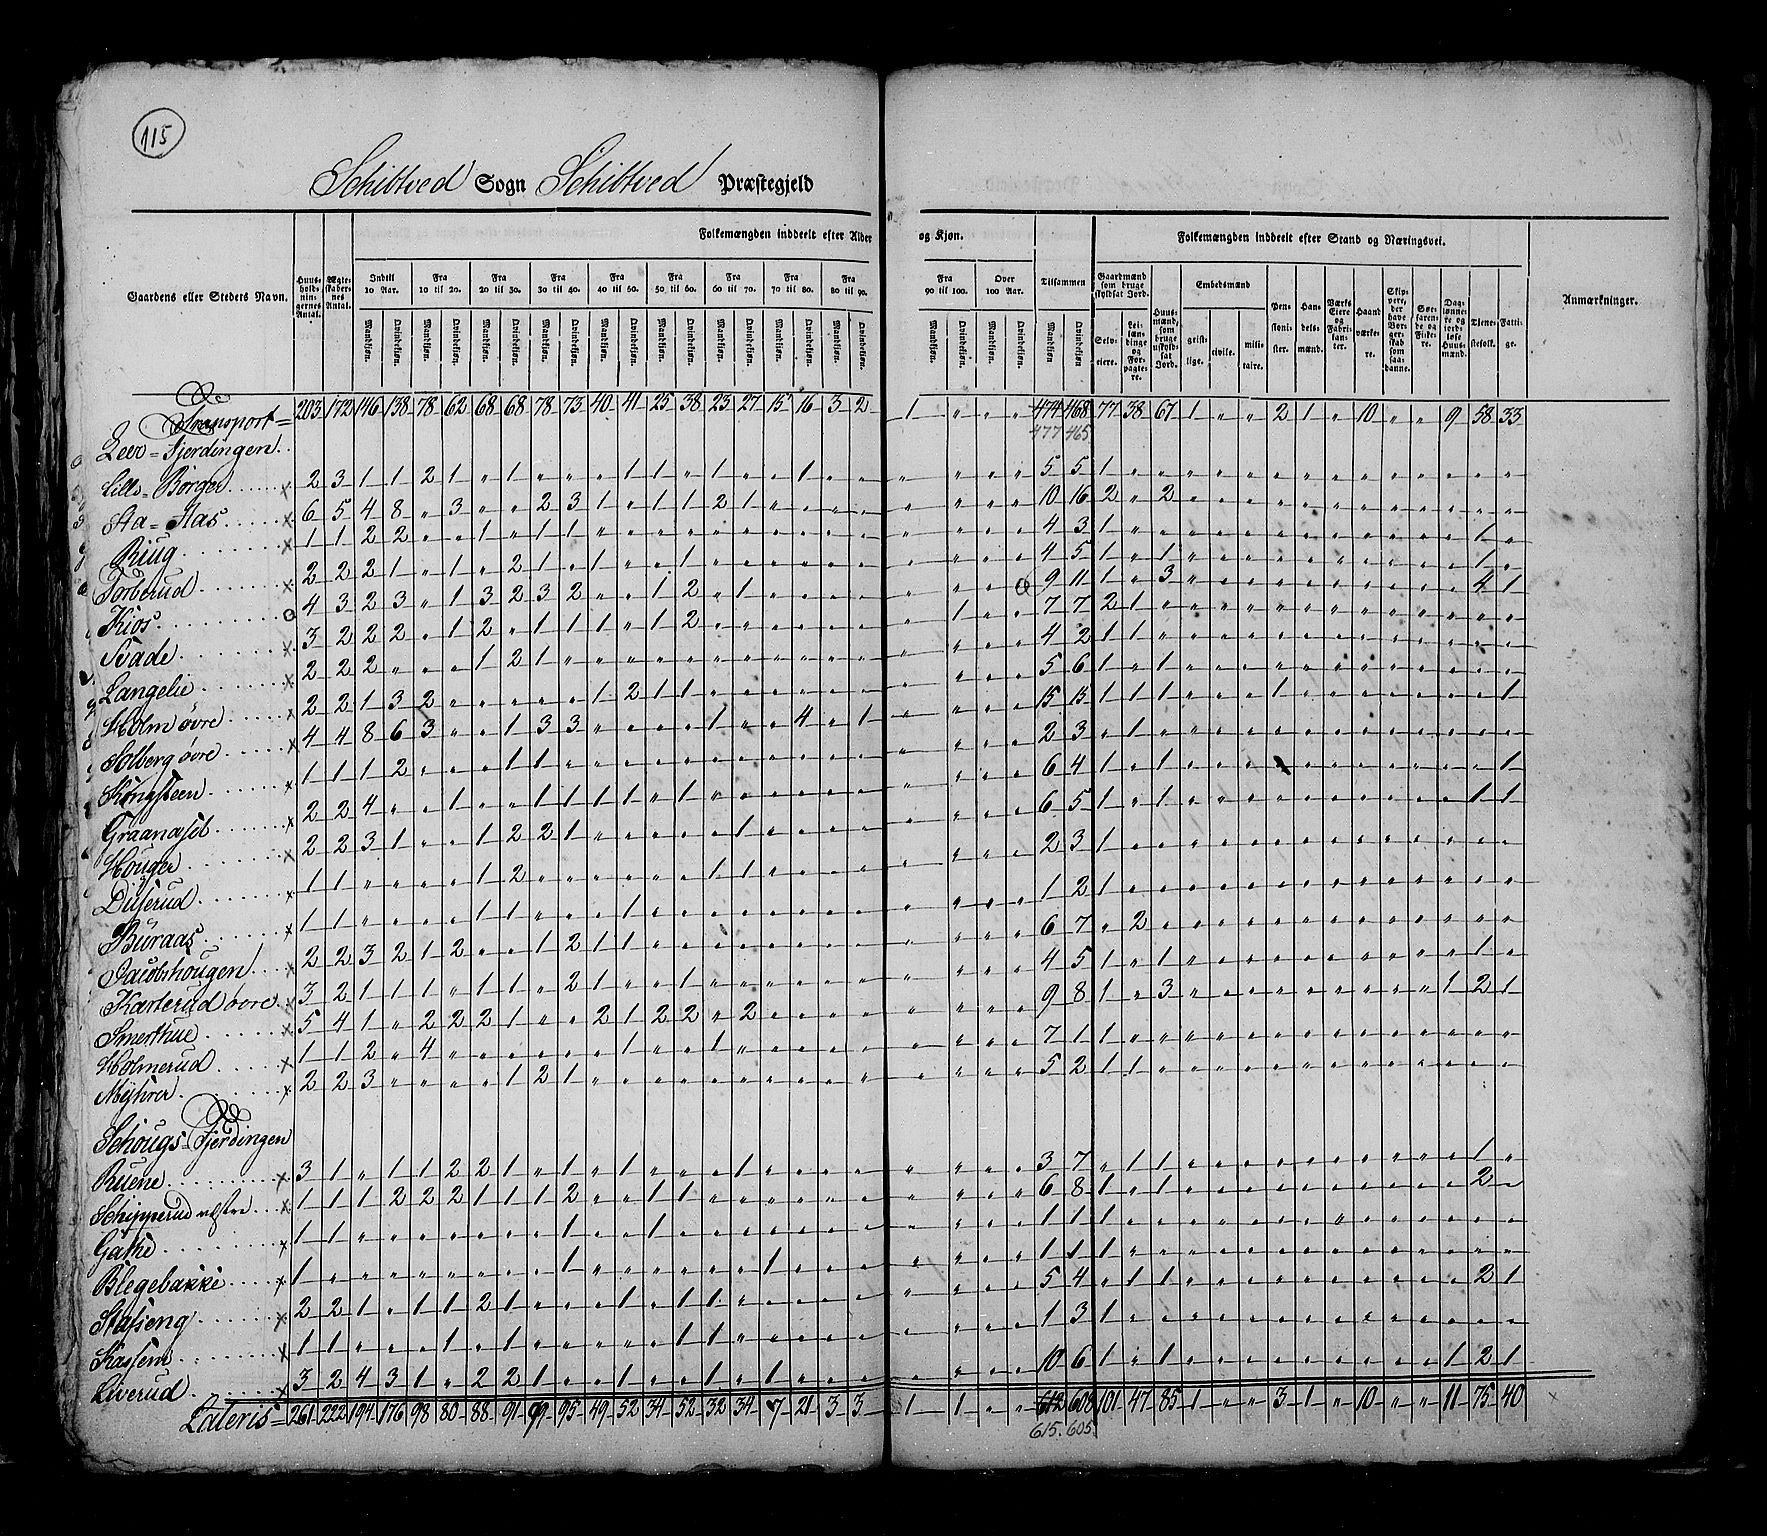 115
Schibtved Sogn Schibtved Præstegjeld
Folkemængden inddeelt efter Alder og Kjøn. Folkemængden inddeelt efter Stand og Næringsvei.
Gaardens eller Stedets Navn. Huusholdningernes Antal. Ægteskabernes Antal. Indtil 10 Aar. Fra 10 til 20. Fra 20 til 30. Fra 30 til 40. Fra 40 til 50. Fra 50 til 60. Fra 60 til 70. Fra 70 til 80. Fra 80 til 90. Fra 90 til 100. Over 100 Aar. Tilsammen Gaardmænd som bruge skyldsat Jord. Huusmænd, som bruge uskyldsat Jord. Embedsmænd Pensionister. Handelsmænd. Værks Eiere og Fabrikanter. Haandværkere. Skippere, der have Borgerskab som saadanne. Søfarende og Fiskere. Daglønnere og jordløse Huusmænd. Tjenestefolk. Fattige. Anmærkninger.
Mandkjøn. Qvindekjøn. Selveiere. Leilændinge og Forpagtere. geistlige. civile. militaire.
Transport = 203 172 146 138 78 62 68 68 78 73 40 41 25 38 23 27 15 16 3 2 1 " " " 474 468 77 38 67 1 " " 2 1 " 10 " " 9 58 33
477 465
Leer = Fjerdingen.
Lille = Borger x 2 3 1 1 2 1 " 1 " " " 1 1 " 1 " " 1 " " " " " " 5 5 1
Sta = Aas x 6 5 4 8 " 3 " " 2 3 1 " 1 1 2 1 " " " " " " " " 10 16 2 " 2
Riug x 1 1 2 2 " " 1 " 1 1 4 3 1 1
Torberud x 2 2 2 1 " 1 " 2 1 " 1 " " 1 4 5 1 " 1 1
Kios o 4 3 2 3 " 1 3 2 3 2 " " 1 2 " 1 9 11 1 " 3 4 1
Bade x 3 2 2 2 " 1 2 " 1 1 1 " 1 2 1 7 7 2 1
Langelie x 2 2 2 " " " 1 2 1 4 2 1 1
Holm øvre x 2 2 1 3 2 " " " " " 1 2 1 1 5 6 1 " 1
Solberg øvre x 4 4 8 6 3 " " 1 3 3 " " " " 1 " " 4 " 1 15 15 1 1 1 1 1
Kongsteen x 1 1 1 2 " " " 1 1 2 3 " 1
Graanæsel x 2 2 4 " " 1 " " 1 1 1 1 " 1 6 4 1 " 1 1
Houger x 2 2 3 1 " " 1 2 2 1 " " " " " 1 6 5 1 " 1 1 1
Diserud x 1 1 " " " " 1 2 " " " " " " 1 1 2 3 1
Buraas x 1 1 " " " " 1 1 " " " 1 1 2 1
Jacobshougen x 2 2 3 2 1 2 " " 1 2 1 1 6 7 " 2
Karterud øvre x 3 2 1 1 1 " 1 1 " 2 1 " " 1 4 5 1 " 1 1
Smerthue x 5 4 1 " 2 2 2 1 " " 2 1 2 2 " 2 9 8 1 " 3 1 2 1
Holmerud x 1 1 2 " 4 " " " " " " 1 " " 1 7 1 1
Myhrer x 2 2 3 " " " " 1 2 1 5 2 1 1
Schougs = Fjerdingen
Ruene x 3 1 " 1 1 2 2 1 " 1 " 1 " " " 1 3 7 " 1 1 1
Schipperud væstre x 1 1 1 2 2 2 1 1 1 2 " " 1 1 6 8 1 " 1 2
Gathe x 1 1 " " " " " " " 1 " " 1 1 1 1
Blegebakke x 1 " " " " " " " " 1 " " " " " " 1 1 1 1
Statseng x 2 2 1 " 1 1 2 1 " " " 1 " 1 1 5 4 " 1 1 2 1
Kassene x 1 1 " " " 1 " 1 " " " " " 1 1 1 3 1
Liverud x 3 2 4 3 1 " 2 2 1 " " 1 " 1 " 1 " 1 10 6 1 " 1 1 2 1
Lateris = 261 222 194 176 98 80 88 91 99 95 49 52 34 52 32 34 7 21 3 3 1 1 " " 612 608 101 47 85 1 " " 3 1 " 10 " " 11 75 40
615 605